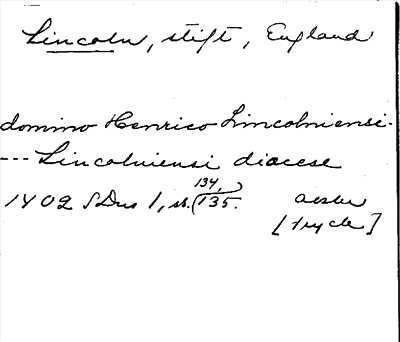 Lincoln, stift, England
domino Henrico Lincolniensi.
--- Lincolniensi diocese
1402 SDns 1, s. (134, 135.
[tryck]